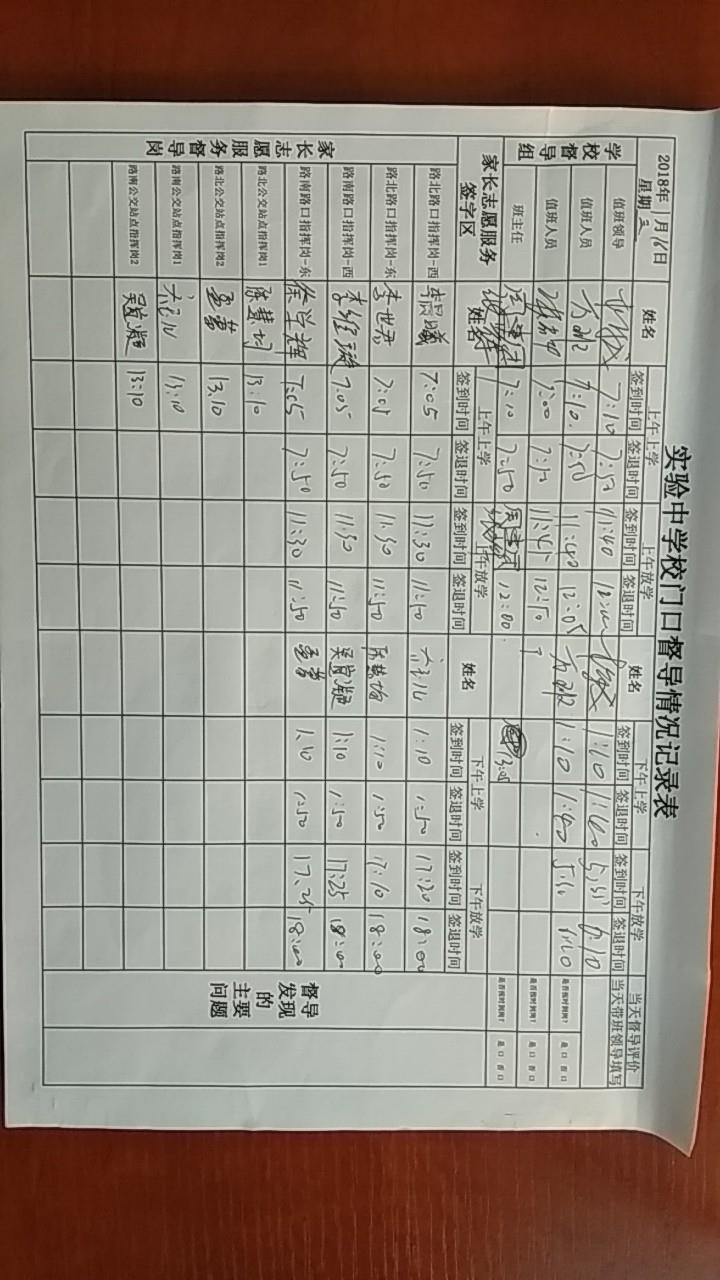 实验中学校门口督导情况记录表
2018年 11月16日 星期五 姓名 上午上学 上午放学 姓名 下午上学 下午放学 当天督导评价 当天带班领导填写
签到时间 签退时间 签到时间 签退时间 签到时间 签退时间 签到时间 签退时间
学校督导组
值班领导 7:10 7:50 11:40 1:10
值班人员 7:10 7:50 11:40 12:05 1:10 1:40 是否按时到岗? 是口 否口
值班人员 7:00 7:50 11:45 12:10 是否按时到岗? 是口 否口
班主任 7:10 7:50 12:00 13:05 是否按时到岗? 是口 否口
家长志愿服务签字区 姓名 上午上学 上午放学 姓名 下午上学 下午放学 督导发现的主要问题
签到时间 签退时间 签到时间 签退时间 签到时间 签退时间 签到时间 签退时间
家长志愿服务督导岗
路北路口指挥岗-西 7:05 7:50 11:30 11:50 1:10 1:50 17:20 18:00
路北路口指挥岗-东 李世君 7:05 7:50 11:30 11:50 陈慧均 1:10 1:50 17:10 18:00
路南路口指挥岗-西 7:05 7:50 11:30 11:50 吴岚凝 1:10 1:50 17:25 18:00
路南路口指挥岗-东 徐学辉 7:05 7:50 11:30 11:50 孟蕾 1:10 1:50 17:25 18:00
路北公交站点指挥岗1 陈慧均 13:10
路北公交站点指挥岗2 孟蕾 13:10
路南公交站点指挥岗1 13:10
路南公交站点指挥岗2 吴岚凝 13:10